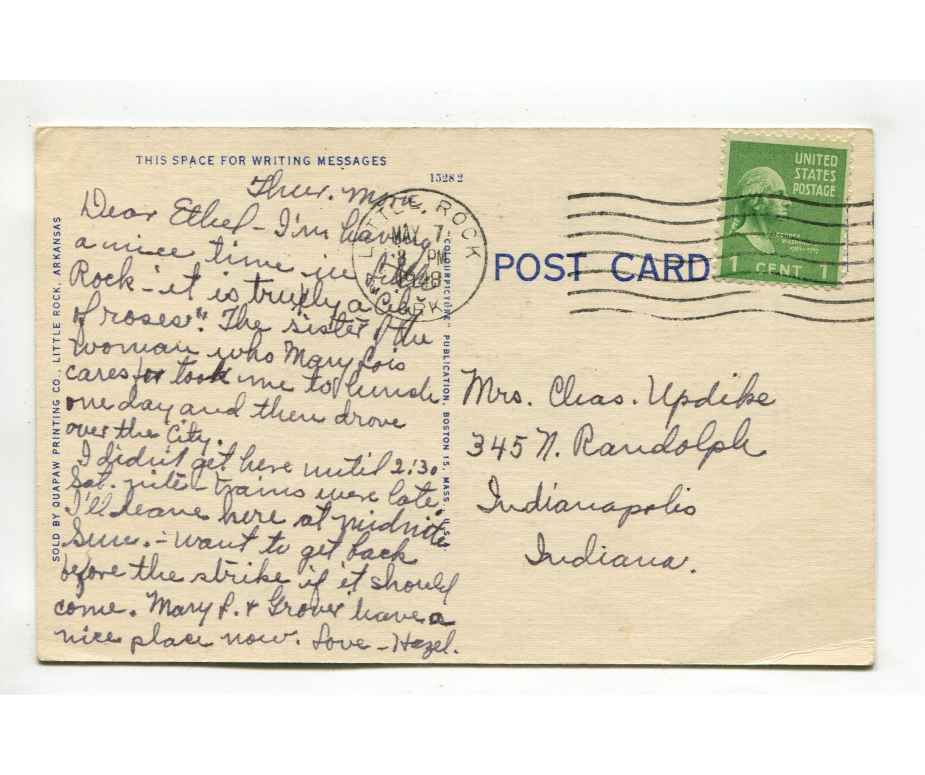 THIS SPACE FOR WRITING MESSAGES
15282
Thur. Morn.
Dear Ethel - I'm having
a nice time in Little
Rock - it is truly a "City
of roses". The sister of the
woman who Mary Lois
cares for took me to lunch
one day and then drove
over the City.
I didn't get here until 2:30
Sat. nite - trains were late
I'll leave here at midnite
Sun. - want to get back
before the strike if it should
come. Mary L. + Grover have a
nice place now. Love - Hazel.
SOLD BY QUAPAW PRINTING CO., LITTLE ROCK, ARKANSAS
"COLOURPICTURE" PUBLICATION, BOSTON 15, MASS., U.S.A.
LITTLE ROCK
MAY 7
PM
1948
ARK.
POST CARD
UNITED
STATES
POSTAGE
GEORGE
WASHINGTON
1 CENT 1
Mrs. Chas. Updike
345 N. Randolph
Indianapolis
Indiana.